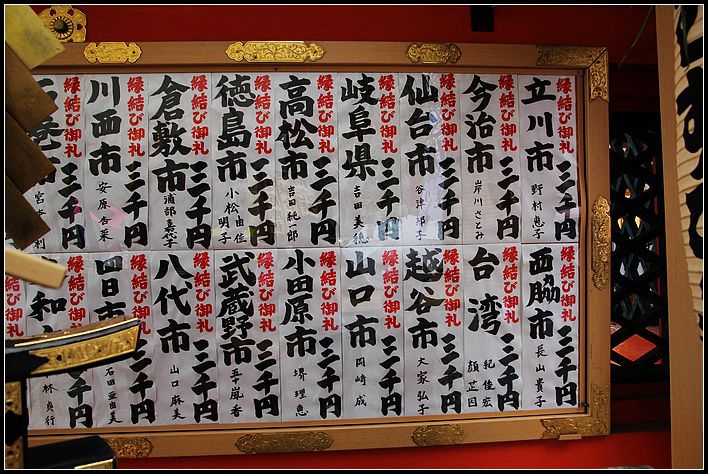 縁結び御礼
立川市
三千円
野村恵子
縁結び御礼
今治市
三千円
岸川さとみ
縁結び御礼
仙台市
三千円
谷津邦子
縁結び御礼
岐阜県
三千円
吉田美穂
縁結び御礼
高松市
三千円
吉田純一郎
縁結び御礼
徳島市
三千円
小松由佳
明子
縁結び御礼
倉敷市
三千円
縁結び御礼
川西市
三千円
安原杏菜
縁結び御礼
三千円
縁結び御礼
西脇市
三千円
長山貴子
縁結び御礼
台湾
三千円
紀佳宏
顔芷因
縁結び御礼
越谷市
三千円
大家弘子
縁結び御礼
山口市
三千円
岡崎成
縁結び御礼
小田原市
三千円
堺理恵
縁結び御礼
武蔵野市
三千円
五十嵐香
縁結び御礼
八代市
三千円
山口麻美
縁結び御礼
四日市
三千円
石田亜由美
縁結び御礼
和
千円
林貞行
御礼